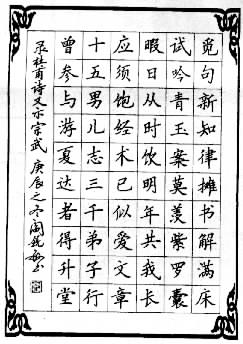 觅句新知律摊书解满床
试吟青玉案莫羡紫罗囊
暇日从时饮明年共我长
应须饱经术已似爱文章
十五男儿志三千弟子行
曾参与游夏达者得升堂
录杜甫诗又示宗武 庚辰之冬